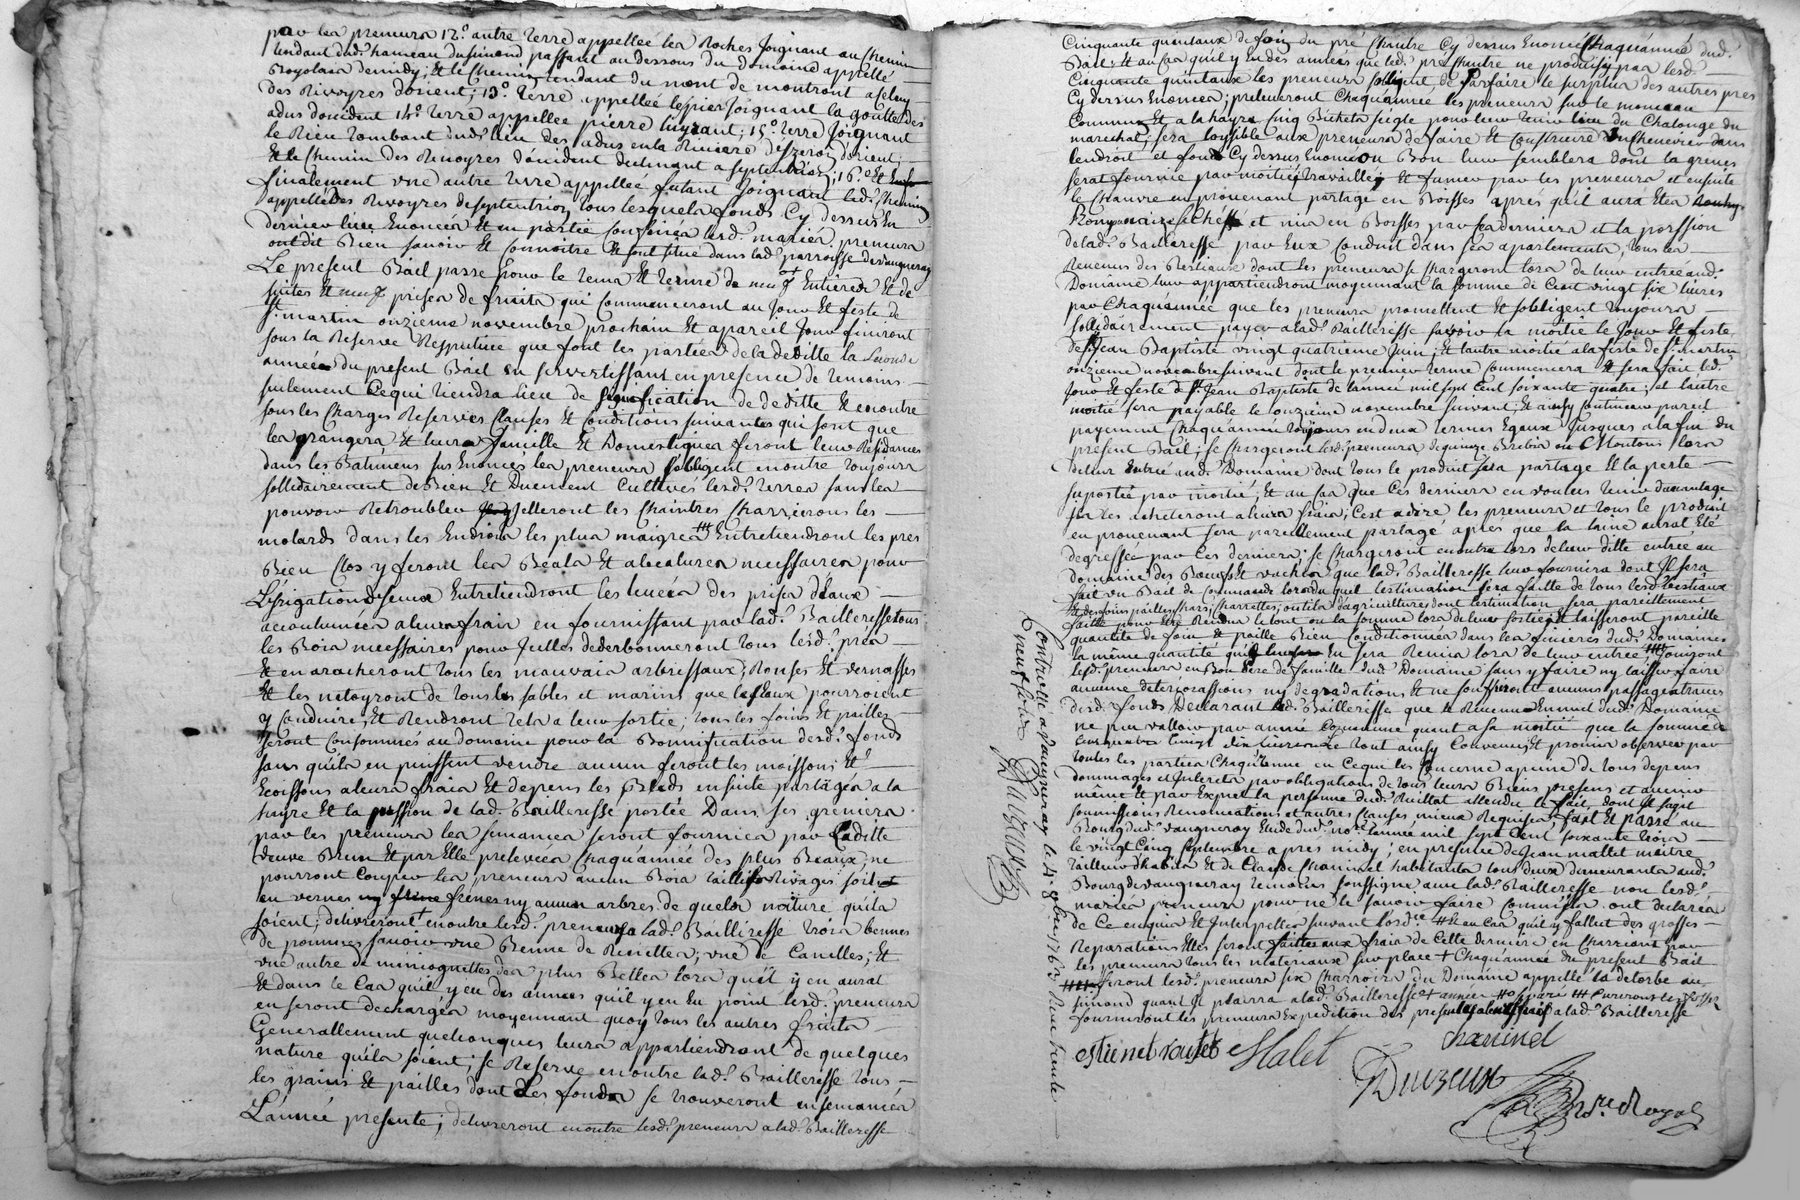 par les preneurs 12.° autre terre appellée les Roches Joignant au chemin
tendant dud. hameau dusimond, passant au dessous du domaine appellé
de midy; Et le chemin tendant du mont de montront
des Rivoyres dorient; 13.° terre appellée lepier Joignant la goutte des
adus doccident 14.° terre appellée pierre ; 15.° terre Joignant
le Rieu tombant dud. lieu des adus en la Riviere dorient;
Et le chemin des Rivoyres d'occident declinant a septentrion; 16.° Et
finalement une autre terre appellée Joignant led. chemin
appellé des Rivoyres de septentrion tous lesquels fonds Cy dessus En
dernier lieu Enoncés Et en partie Confinés lesd. mariés preneurs
ont dit Bien savoir Et Connoitre Et sont situé dans lad. parroisse de vaugneray
Le present Bail passé pour le tems Et terme de neuf Entieres Et de
suites Et neuf prises de fruits qui Commenceront au Jour Et feste de
St. martin onzieme novembre prochain Et apareil Jour finiront
sous la Reserve Respective que font les parties de la deditte la seconde
année du present Bail en s'avertissant en presence de temoins
seulement Cequi tiendra lieu de signification de deditte Et encontre
sous les Charges Reserves Clauses Et Conditions suivantes qui sont que
les grangers Et leurs famille Et Domestiques feront leur Residances
dans les Batimens sus Enoncés les preneurs s'obligent encontre toujours
sollidairement de Bien Et Duement Cultivés lesd. terres sans les
pouvoir Retroubler Jetteront les Chaintres Charrieront les
molards dans les Endroits les plus maigres Entretiendront les prés
Bien Clos y feront les Beals Et necessaires pour
Entretiendront les des prises d'eaux
accoutumées aleurs frais en fournissant par lad. Bailleresse tous
les Bois necessaires pour Jcelles dederbonneront tous lesd. prés
Et en aracheront tous les mauvais arbrissaux, Ronses Et vernasses
Et les netoyront de tous les sables et marins que les Eaux pourroient
y Conduire, Et Rendront tels a leur sortie; tous les foins Et pailles
seront Consommés au domaine pour la Bonnification desd. fonds
sans quils en puissent vendre aucun feront les moissons Et
Ecoissons a leurs frais Et depens les Bleds ensuite partagés a la
hayre Et la portion de lad. Bailleresse portée Dans ses greniers
par les preneurs les semances seront fournies par Laditte
veuve Brun Et par Elle prelevées Chaqu'année des plus Beaux; ne
pourront Couper les preneurs aucun Bois Rivages soit
en vernes frenes ny aucun arbres de quelos nature quils
soient; delivreront encontre lesd. preneurs a lad. Bailleresse trois bennes
de pommes savoir une Benne de Renettes; une de Canelles; Et
une autre de des plus Belles lors qu'il y en aurat
Et dans le Cas quil y eu des années quil y en Eu point lesd. preneurs
en seront dechargés moyennant quoy tous les autres fruits
Generallement quelconques leurs appartiendront de quelques
nature quils soient; se Reserve encontre lad. Bailleresse tous
les grains Et pailles dont les fonds se trouveront ensemancés
L'année presente; delivreront encontre lesd. preneurs a lad. Bailleresse
Cinquante quintaux de foin du pré Chantre Cy dessus Enoncé Chaqu'année dud.
Bail; Et au Cas quil y Eu des années que led. pré Chantre ne produisit pas lesd.
Cinquante quintaux les preneurs s'obligent de Parfaire le surplus des autres prés
Cy dessus Enoncés; preleveront Chaqu'année les preneurs sur le monceau
Commun Et a la hayre Cinq Bichets seigle pour leur tenir lieu du Chalonge du
marechal; sera loysible aux preneurs de faire Et Construire un Chenevier dans
lendroit et fonds Cy dessus Enoncé ou Bon leur semblera dont la grenes
serat fournie par moitié travaillé Et fumée par les preneurs et ensuite
le Chanvre en provenant partagé en Boisses après qu'il aura Eté
et mis en Bosses par ces derniers et la portion
de lad. Bailleresse par Eux Conduit dans ses apartements, tous les
Revenus des Bestiaux dont les preneurs se Chargeront lors de leur entrée aud.
Domaine leur appartiendront moyennant la somme de Cent vingt six livres
par Chaqu'année que les preneurs promettent Et s'obligent toujours
sollidairement payer a lad. Bailleresse savoir la moitié le Jour Et feste
de St. Jean Baptiste vingt quatrieme Juin, Et lautre moitié a la feste de St. martin
onzieme novembre suivant dont le premier terme Commencera Et sera fait led.
Jour Et feste de St. Jean Baptiste de lannée mil sept Cent soixante quatre; et lautre
moitié sera payable le onzieme novembre suivant; Et ainsy Continuer pareil
payement Chaqu'année toujours en deux termes Egaux Jusques a la fin du
present Bail; se Chargeront lesd. preneurs de quinze Brebis ou Moutons lors
de leur Entrée aud. Domaine dont tous le produit sera partagé Et la perte
suportée par moitié; Et au Cas que Ces derniers en voulus tenir davantage
Jls les acheteront a leurs frais; C'est adire les preneurs et tous le produit
en provenant sera pareillement partagé après que la laine aurat Eté
degressée par Ces derniers; se Chargeront encontre lors de leur ditte entrée au
domaine des Boeufs Et vaches que lad. Bailleresse leur fournira dont Jl sera
fait un Bail de Commande lors du quel lestimation sera faitte de tous lesd. Bestiaux
Et des foins pailles, Chars, Charrettes, outils d'agriculture dont lestimation sera pareillement
faitte pour Etre Rendus le tout ou la somme lors de leur sortie Et laisseront pareille
quantité de foin Et paille Bien Conditionnés dans les finieres dud. Domaine
la même quantité En sera Remis lors de leur entrée Jouiront
lesd. preneurs en Bon Pere de famille dud. Domaine sans y faire ny laisser faire
aucune deteriorassions ny degradations Et ne souffriront aucuns passages traces
desd. fonds Declarant lad. Bailleresse que le Revenu annuel dud. Domaine
ne peu valloir par année Commune quant a sa moitié que la somme de
livres Le tout ainsy Convenus Et promis observer par
toutes les parties Chaqu'une en Cequi les Concerne apeine de tous depens
dommages et Interets par obligations de tous leurs Biens presens et avenir
même Et par Exprès la personne dud. attendu le fait dont Jl sagit
soumissions Renonciations et autres Clauses mieux Requises, fait Et passé au
Bourg dud. vaugneray Etude dud. nore. lannée mil sept Cent soixante trois
le vingt Cinq septembre apres midy; en presence de Jean mallet maitre
tailleur d'habits Et de Claude Chaninel habitants tous deux demeurants aud.
Bourg de vaugneray temoins soussignés avec lad. Bailleresse non lesd.
mariés preneurs pour ne le savoir faire Comm'ils ont declarés
de Ce enquis Et Interpellés suivant l'ord.ce Et en Cas quil y fallut des grosses
Reparations Elles seront faittes aux frais de Cette derniere en Charriant par
les preneurs tous les materiaux sur place + Chaqu'année du present Bail
feront lesd. preneurs six Charrois du Domaine appellé la detorbe au
simond quant Jl plairra a lad. Bailleresse + année
fourniront les preneurs Expedition des presentes a lad. Bailleresse
Malet
chaninel
Duzeux
Controllé a vaugneray le 4. 8bre 1763